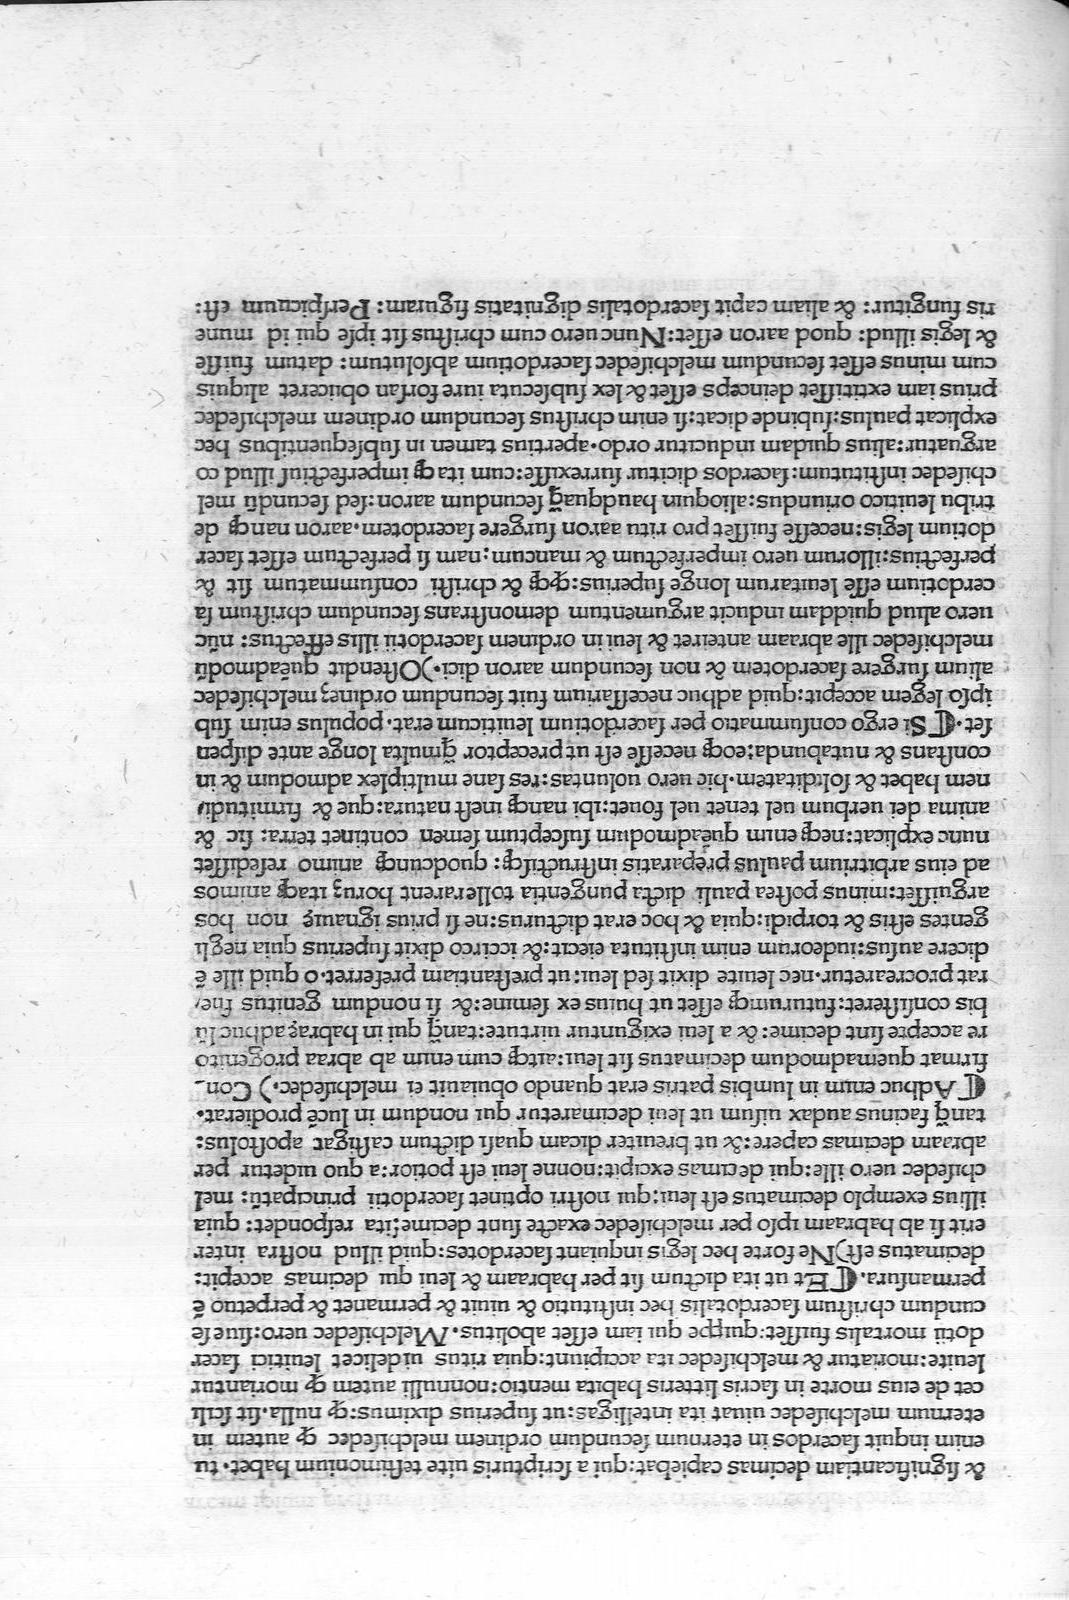 & significantiam decimas capiebat:qui a scripturis uite testimonium habet. tu
enim inquit sacerdos in eternum secundum ordinem melchisedec ꝙ autem in
eternum melchisedec uiuat ita intelligas:ut superius diximus:ꝙ nulla sit scili
cet de eius morte in sacris litteris habita mentio:nonnulli autem ꝙ moriantur
leuite:moriatur & melchisedec ita accipiunt:quia ritus uidelicet leuitici sacer
dotii mortalis fuisset:quippe qui iam esset abolitus. Melchisedec uero:siue se
cundum christum sacerdotalis hec institutio & uiuit & permanet & perpetuo ē
permansura. ¶ Et ut ita dictum sit per habraam & leui qui decimas accepit:
decimatus est) Ne forte hec legis inquiant sacerdotes:quid illud nostra inter
erit si ab habraam ipso per melchisedec exacte sunt decime:ita respondet: quia
illius exemplo decimatus est leui:qui nostri optinet sacerdotii principatū: mel
chisedec uero ille:qui decimas excipit:nonne leui est potior:a quo uidetur per
abraam decimas capere:& ut breuiter dicam quasi dictum castigat apostolus:
tanq̄ facinus audax uisum ut leui decimaretur qui nondum in lucē prodierat.
¶ Adhuc enim in lumbis patris erat quando obuiauit ei melchisedec.) Con-
firmat quemadmodum decimatus sit leui:aitqꝫ cum enim ab abraa progenito
re accepte sint decime:& a leui exiguntur uirtute:tanq̄ qui in habraꝫ adhuc lū
bis consisteret:futurumqꝫ esset ut huius ex semine:& si nondum genitus fue/
rat procrearetur.nec leuite dixit sed leui:ut prestantiam preferret.o quid ille ē
dicere ausus:iudeorum enim instituta eiecit:& iccirco dixit superius quia negli
gentes estis & torpidi:quia & hoc erat dicturus:ne si prius ignauiꝫ non hos
arguisset:minus postea pauli dicta pungentia tollerarent horuꝫ itaqꝫ animos
ad eius arbitrium paulus preparatis instructisqꝫ: quodcunqꝫ animo resedisset
nunc explicat:neqꝫ enim quēadmodum susceptum semen continet terra: sic &
anima dei uerbum uel tenet uel fouet:ibi nanqꝫ inest natura:que & firmitudi/
nem habet & soliditatem.hic uero uoluntas:res sane multiplex admodum & in
constans & nutabunda:eoqꝫ necesse est ut preceptor q̄multa longe ante dispen
set. ¶ Si ergo consummatio per sacerdotium leuiticum erat. populus enim sub
ipso legem accepit:quid adhuc necessarium fuit secundum ordineꝫ melchisedec
alium surgere sacerdotem & non secundum aaron dici.) Ostendit quēadmodū
melchisedec ille abraam anteiret & leui in ordinem sacerdotii illis effectus: nūc
uero aliud quiddam inducit argumentum demonstrans secundum christum sa
cerdotium esse leuitarum longe superius:ꝙqꝫ & christi consummatum sit &
perfectius:illorum uero imperfectum & mancum:nam si perfectum esset sacer
dotium legis:necesse fuisset pro ritu aaron surgere sacerdotem.aaron nanqꝫ de
tribu leuitico oriundus:alioquin haudquaq̄ secundum aaron:sed secundū mel
chisedec institutum:sacerdos dicitur surrexisse:cum itaqꝫ imperfectius illud co
arguatur:alius quidam inducitur ordo.apertius tamen in subsequentibus hec
explicat paulus:subinde dicat:si enim christus secundum ordinem melchisedec
prius iam extitisset deinceps esset & lex subsecuta iure forsan obiiceret aliquis
cum minus esset secundum melchisedec sacerdotium absolutum: datum fuisse
& legis illud: quod aaron esset:Nunc uero cum christus sit ipse qui id mune
ris fungitur: & aliam capit sacerdotalis dignitatis figuram: Perspicuum est: